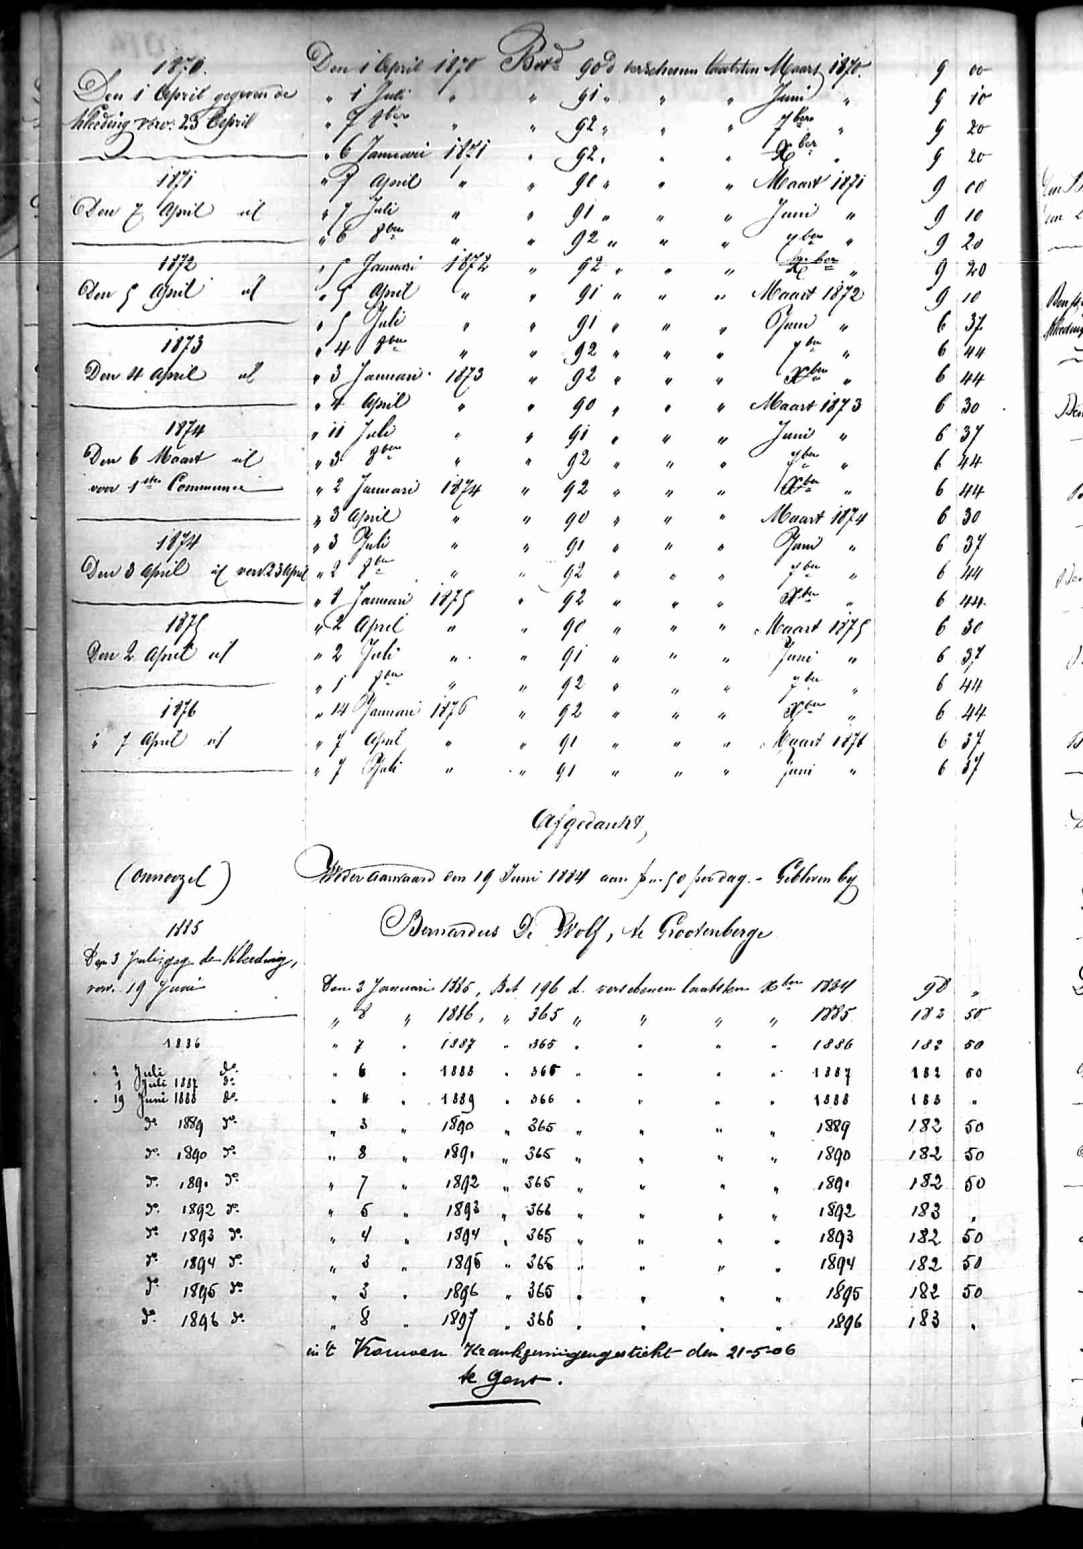 1870. Den 1 April 1870 Bet.d 90 d verschenen laatsten Maart 1870. 9 00
Den 1 April gegeven de " 1 Juli " " 91 " " " Juni " 9 10
kleeding verv. 23 April " 7 8ber " " 92 " " " 7ber " 9 20
" 6 Januari 1871 " 92 " " " Xber " 9 20
1871 " 7 April " " 90 " " " Maart 1871 9 00
Den 7 April id " 7 Juli " " 91 " " " Juni " 9 10
" 6 8ber " " 92 " " " 7ber " 9 20
1872 " 5 Januari 1872 " 92 " " " Xber " 9 20
Den 5 April id " 5 April " " 91 " " " Maart 1872 9 10
" 5 Juli " " 91 " " " Juni " 6 37
1873 " 4 8ber " " 92 " " " 7ber " 6 44
Den 4 April id " 3 Januari 1873 " 92 " " " Xber " 6 44
" 4 April " " 90 " " " Maart 1873 6 30
1874 " 11 Juli " " 91 " " " Juni " 6 37
Den 6 Maart id " 3 8ber " " 92 " " " 7ber " 6 44
voor 1ste Communie " 2 Januari 1874 " 92 " " " Xber " 6 44
" 3 April " " 90 " " " Maart 1874 6 30
1874 " 3 Juli " " 91 " " " Juni " 6 37
Den 3 April id verv. 23 April " 2 8ber " " 92 " " " 7ber " 6 44
" 8 Januari 1875 " 92 " " " Xber " 6 44
1875 " 2 April " " 90 " " " Maart 1875 6 30
Den 2 April id " 2 Juli " " 91 " " " Juni " 6 37
" 1 8ber " " 92 " " " 7ber " 6 44
1876 " 14 Januari 1876 " 92 " " " Xber " 6 44
" 7 April id " 7 April " " 91 " " " Maart 1876 6 37
" 7 Juli " " 91 " " " juni " 6 37
Afgedankt,
(onnoozel) Wederaanvaard den 19 Juni 1884 aan fr 0.50 per dag. - Gebleven by
1885 Bernardus De Wolf, te Grootenberge
Den 3 Juli geg. de Kleeding,
verv. 19 Juni Den 2 Januari 1885, Bet 196 d. verschenen laatsten Xber 1884 98 "
" 8 " 1886, " 365 " " " " 1885 182 50
1886 " 7 " 1887 " 365 " " " " 1886 182 50
" 2 Juli do. " 6 " 1888 " 365 " " " " 1887 182 50
1 Juli 1887 do.
" 19 Juni 1888 do. " 4 " 1889 " 366 " " " " 1888 183 "
do. 1889 do. " 3 " 1890 " 365 " " " " 1889 182 50
do. 1890 do. " 8 " 1891 " 365 " " " " 1890 182 50
do. 1891 do. " 7 " 1892 " 365 " " " " 1891 182 50
do. 1892 do. " 6 " 1893 " 366 " " " " 1892 183 "
do. 1893 do. " 4 " 1894 " 365 " " " " 1893 182 50
do. 1894 do. " 3 " 1895 " 365 " " " " 1894 182 50
do. 1895 do. " 3 " 1896 " 365 " " " " 1895 182 50
do. 1896 do. " 8 " 1897 " 366 " " " " 1896 183 "
in 't Vrouwen Krankzinnigengesticht den 21-5-06
te Gent.